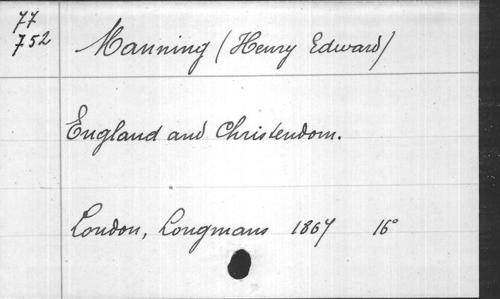 77
752
Manning (Henry Edward)
England and Christendom.
London, Longmans 1867 16°